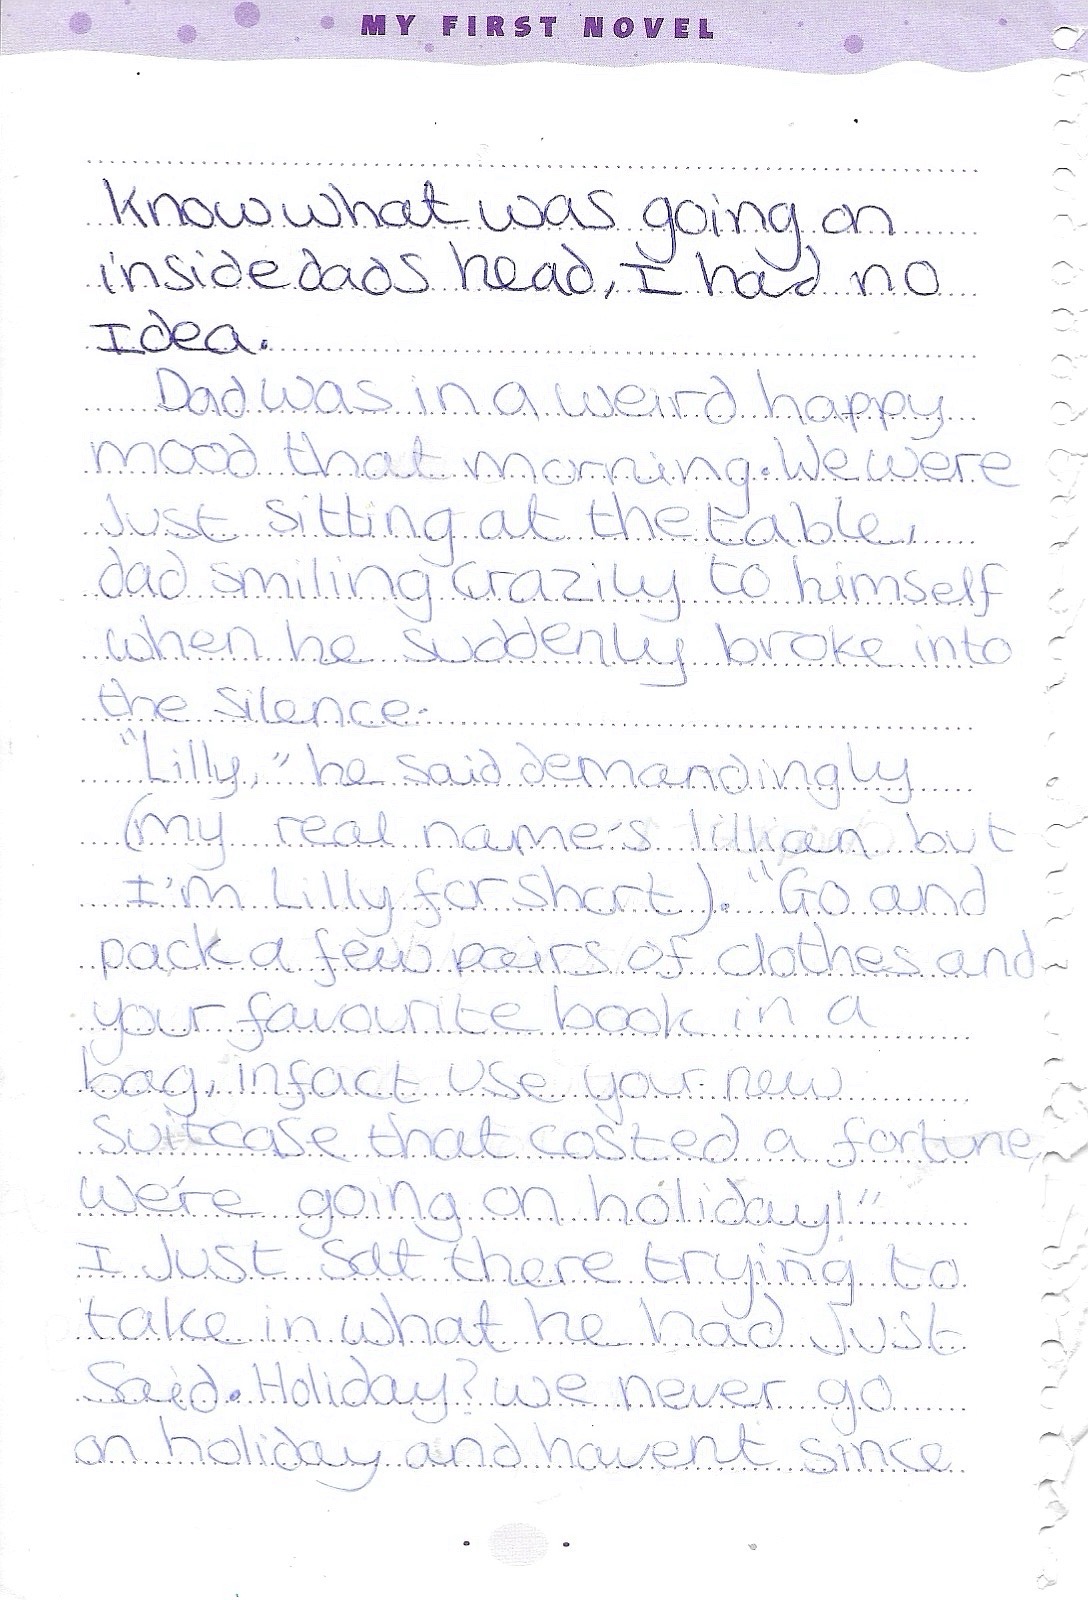 MY FIRST NOVEL
know what was going on
inside dads head, I had no
Idea.
Dad was in a weird happy
mood that morning. We were
Just sitting at the table,
dad smiling crazily to himself
when he suddenly broke into
the silence.
"Lilly," he said demandingly
(my real name's lillian but
I'm Lilly for short). "Go and
pack a few pairs of clothes and
your favourite book in a
bag, infact use your new
suitcase that costed a fortune,
We're going on holiday!"
I Just sat there trying to
take in what he had Just
Said. Holiday? we never go
on holiday and havent since